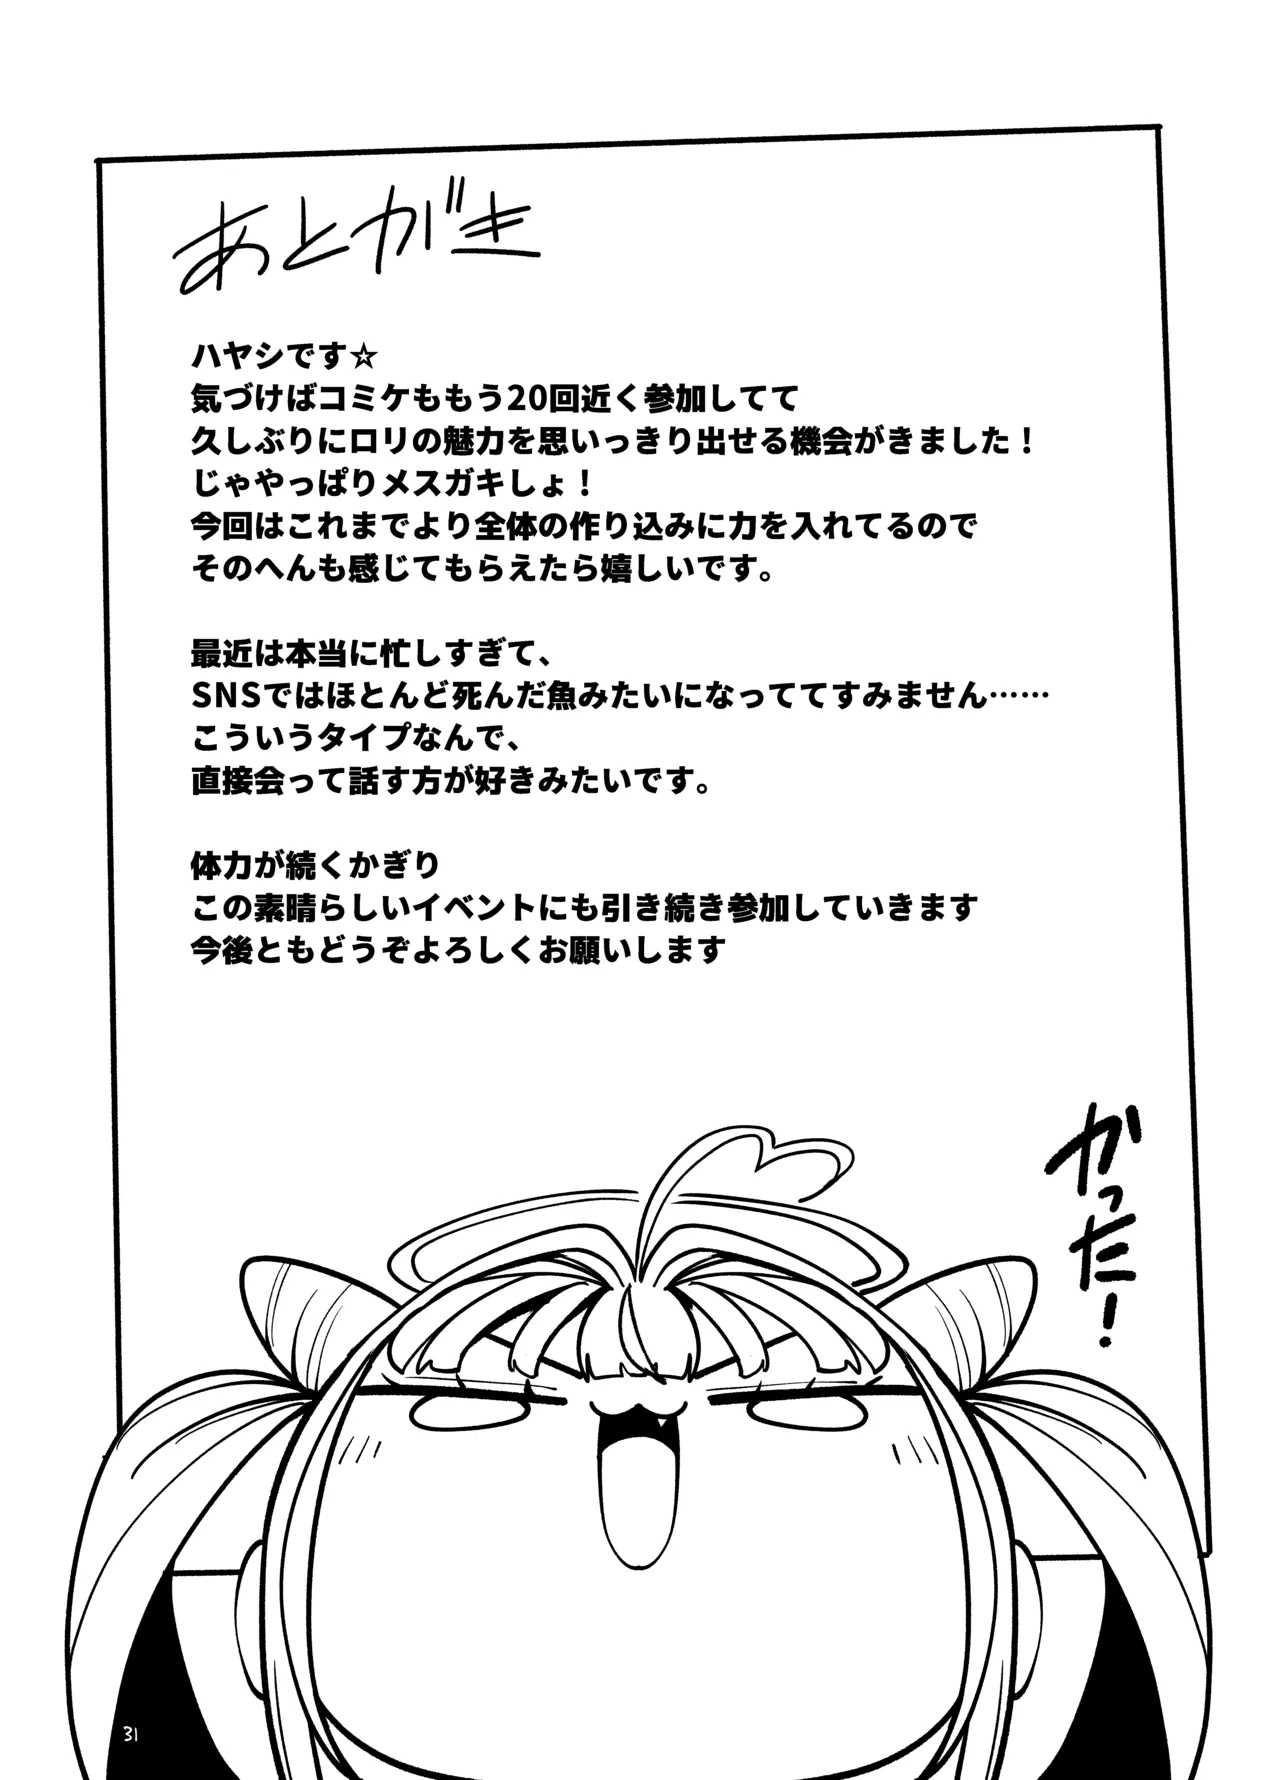 あとがき
ハヤシです☆
気づけばコミケももう20回近く参加してて
久しぶりにロリの魅力を思いっきり出せる機会がきました！
じゃやっぱりメスガキしょ！
今回はこれまでより全体の作り込みに力を入れてるので
そのへんも感じてもらえたら嬉しいです。
最近は本当に忙しすぎて、
SNSではほとんど死んだ魚みたいになっててすみません……
こういうタイプなんで、
直接会って話す方が好きみたいです。
体力が続くかぎり
この素晴らしいイベントにも引き続き参加していきます
今後ともどうぞよろしくお願いします
かった！
31